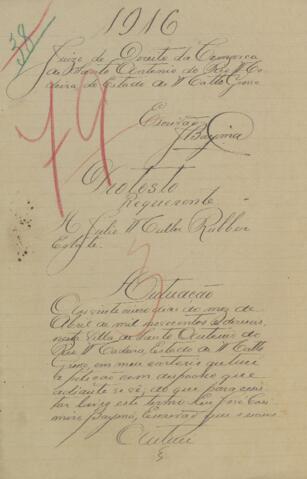 1916
38
Juizo de Direito da Comarca
de Santo Antonio do Rio Ma-
deira do Estado de Matto Grosso
79
Escrivão
Bayma
Protesto
Requerente
Julio Muller Rubber
Estate
Autuação
Aos vinte e nove dias do mez de
Abril de mil novecentos e deseseis,
nesta Villa de Santo Antonio do
Rio Madeira, Estado de Matto
Grosso, em meu cartorio autuei
a petição com despacho que
adiante se vê; do que para cons-
tar lavro este termo. Eu, José Cas-
miro Bayma, Escrivão que o escrevi
Autuei